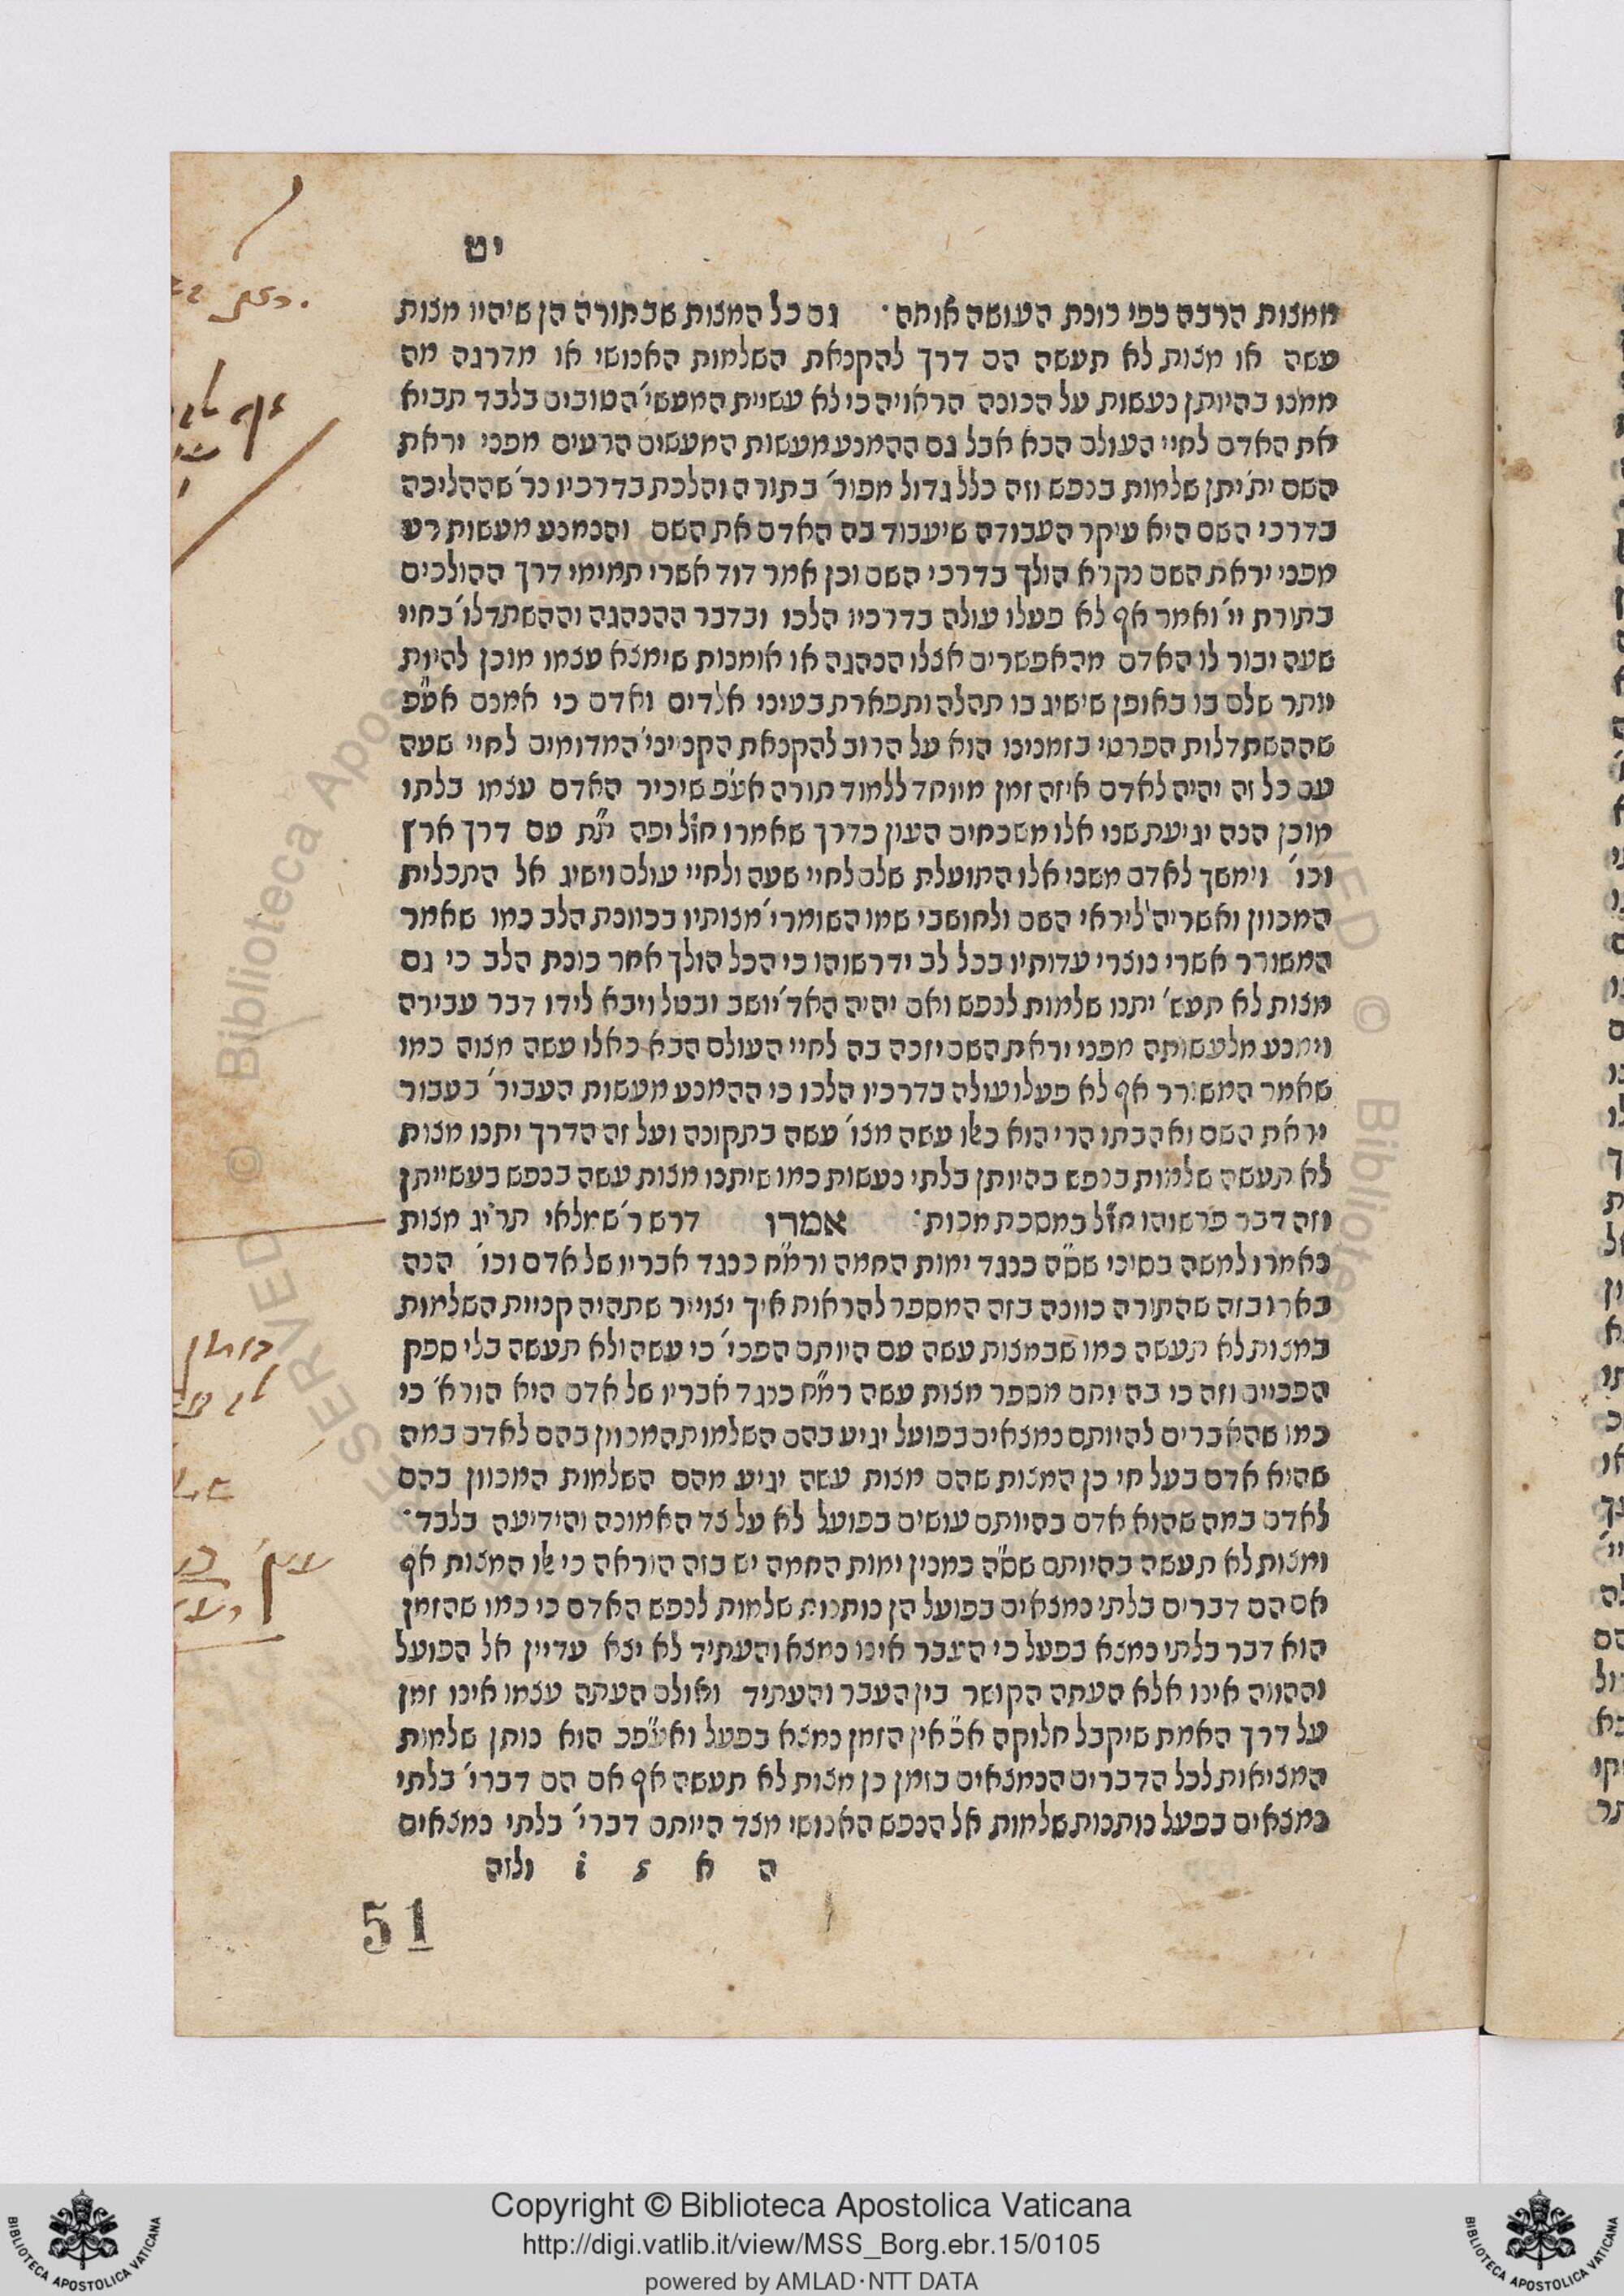 יט
ממצות הרבה כפי כונת העושה אותה· גם כל המצות שבתורה הן שיהיו מצות
עשה או מצות לא תעשה הם דרך להקנאת השלמות האנושי או מדרגה מה
ממנו בהיותן נעשות על הכונה הראויה כי לא עשיית המעשי׳ הטובים בלבד תביא
את האדם לחיי העולם הבא אבל גם ההמנע מעשות המעשים הרעים מפני יראת
השם ית׳ יתן שלמות בנפש וזה כלל גדול מפור׳ בתורה והלכת בדרכיו כר׳ שההליכה
בדרכי השם היא עיקר העבודה שיעבוד בה האדם את השם והנמנע מעשות רע
מפני יראת השם נקרא הולך בדרכי השם וכן אמר דוד אשרי תמימי דרך ההולכים
בתורת יי׳ ואמר אף לא פעלו עולה בדרכיו הלכו ובדבר ההנהגה וההשתדלו׳ בחיי
שעה יבור לו האדם מהאפשרים אצלו הנהגה או אומנות שימצא עצמו מוכן להיות
יותר שלם בו באופן שישיג בו תהלה ותפארת בעיני אלדים ואדם כי אמנם אע״פ
שההשתדלות הפרטי בזמנינו הוא על הרוב להקנאת הקניני׳ המדומים לחיי שעה
עם כל זה יהיה לאדם איזה זמן מיוחד ללמוד תורה אע״פ שיכיר האדם עצמו בלתי
מוכן הנה יגיעת שני אלו משכחים העון כדרך שאמרו חז״ל יפה ת״ת עם דרך ארץ
וכו׳ וימשך לאדם משני אלו התועלת שלם לחיי שעה ולחיי עולם וישיג אל התכלית
המכוון ואשריה׳ ליראי השם ולחושבי שמו השומרי׳ מצותיו בכוונת הלב כמו שאמר
המשורר אשרי נוצרי עדותיו בכל לב ידרשוהו כי הכל הולך אחר כונת הלב כי גם
מצות לא תעש׳ יתנו שלמות לנפש ואם יהיה האד׳ יושב ובטל ויבא לידו דבר עבירה
וימנע מלעשותה מפני יראת השם יזכה בה לחיי העולם הבא כאלו עשה מצוה כמו
שאמר המשורר אף לא פעלו עולה בדרכיו הלכו כי ההמנע מעשות העביר׳ בעבור
יראת השם ואהבתו הרי הוא כאלו עשה מצו׳ עשה בתקונה ועל זה הדרך יתנו מצות
לא תעשה שלמות בנפש בהיותן בלתי נעשות כמו שיתנו מצות עשה בנפש בעשייתן
וזה דבר פרשוהו חז״ל במסכת מכות· אמרו דרש ר׳ שמלאי תרי״ג מצות
נאמרו למשה בסיני שס״ה כנגד ימות החמה ורמ״ח כנגד אבריו של אדם וכו׳ הנה
בארו בזה שהתורה כוונה בזה המספר להראות איך יצוייר שתהיה קניית השלמות
במצות לא תעשה כמו שבמצות עשה עם היותם הפכי׳ כי עשה ולא תעשה בלי ספק
הפכיים וזה כי בהיותם מספר מצות עשה רמ״ח כנגד אבריו של אדם היא הורא׳ כי
כמו שהאברים להיותם נמצאים בפועל יגיע בהם השלמות המכוון בהם לאדם במה
שהוא אדם בעל חי כן המצות שהם מצות עשה יגיע מהם השלמות המכוון בהם
לאדם במה שהוא אדם בהיותם עושים בפועל לא על צד האמונה והידיעה בלבד·
ומצות לא תעשה בהיותם שס״ה כמנין ימות החמה יש בזה הוראה כי אלו המצות אף
אם הם דברים בלתי נמצאים בפועל הן נותנות שלמות לנפש האדם כי כמו שהזמן
הוא דבר בלתי נמצא בפעל כי העבר איננו נמצא והעתיד לא יצא עדיין אל הפועל
וההווה אינו אלא העתה הקושר בין העבר והעתיד ואולם העתה עצמו אינו זמן
על דרך האמת שיקבל חלוקה א״כ אין הזמן נמצא בפעל ואעפ״כ הוא נותן שלמות
המציאות לכל הדברים הנמצאים בזמן כן מצות לא תעשה אף אם הם דברי׳ בלתי
נמצאים בפעל נותנות שלמות אל הנפש האנושי מצד היותם דברי׳ בלתי נמצאים
ה א 5 i ולזה
51
Copyright © Biblioteca Apostolica Vaticana
http://digi.vatlib.it/view/MSS_Borg.ebr.15/0105
powered by AMLAD·NTT DATA